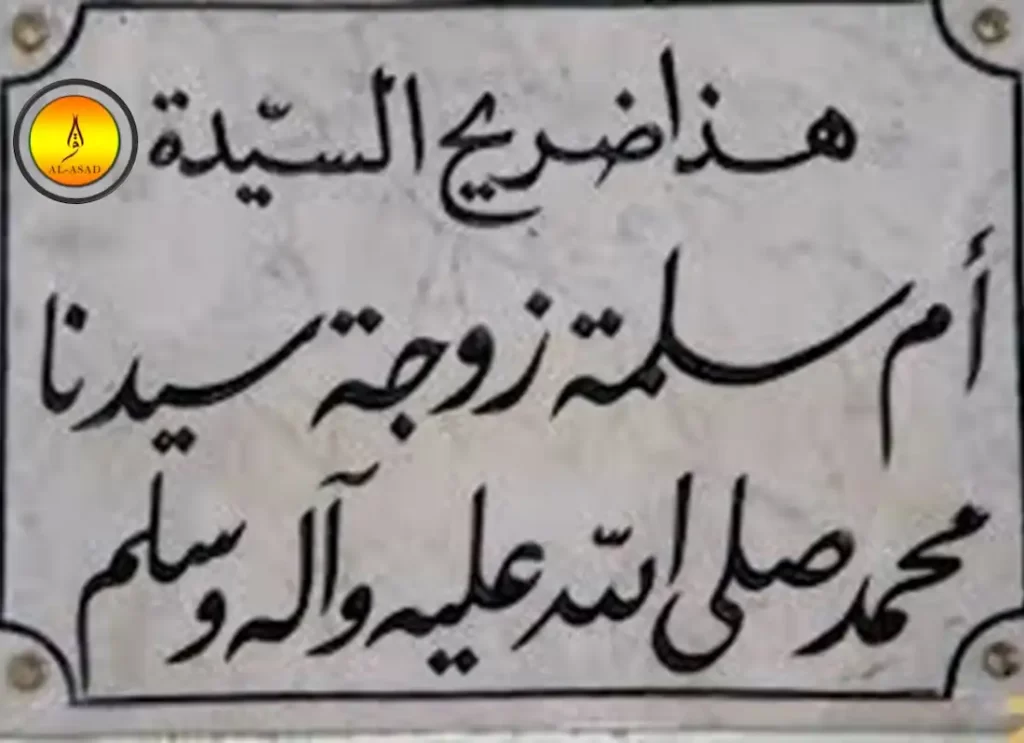 هذا ضريح السيّدة
أم سلمة زوجة سيدنا
محمد صلى اللّه عليه وآله وسلم
AL-ASAD